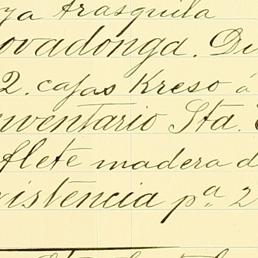 ya Arasquila
ovadonga. Di
2. cajas Kreso á
nventario Sta.
flete madera d
istencia pª 2